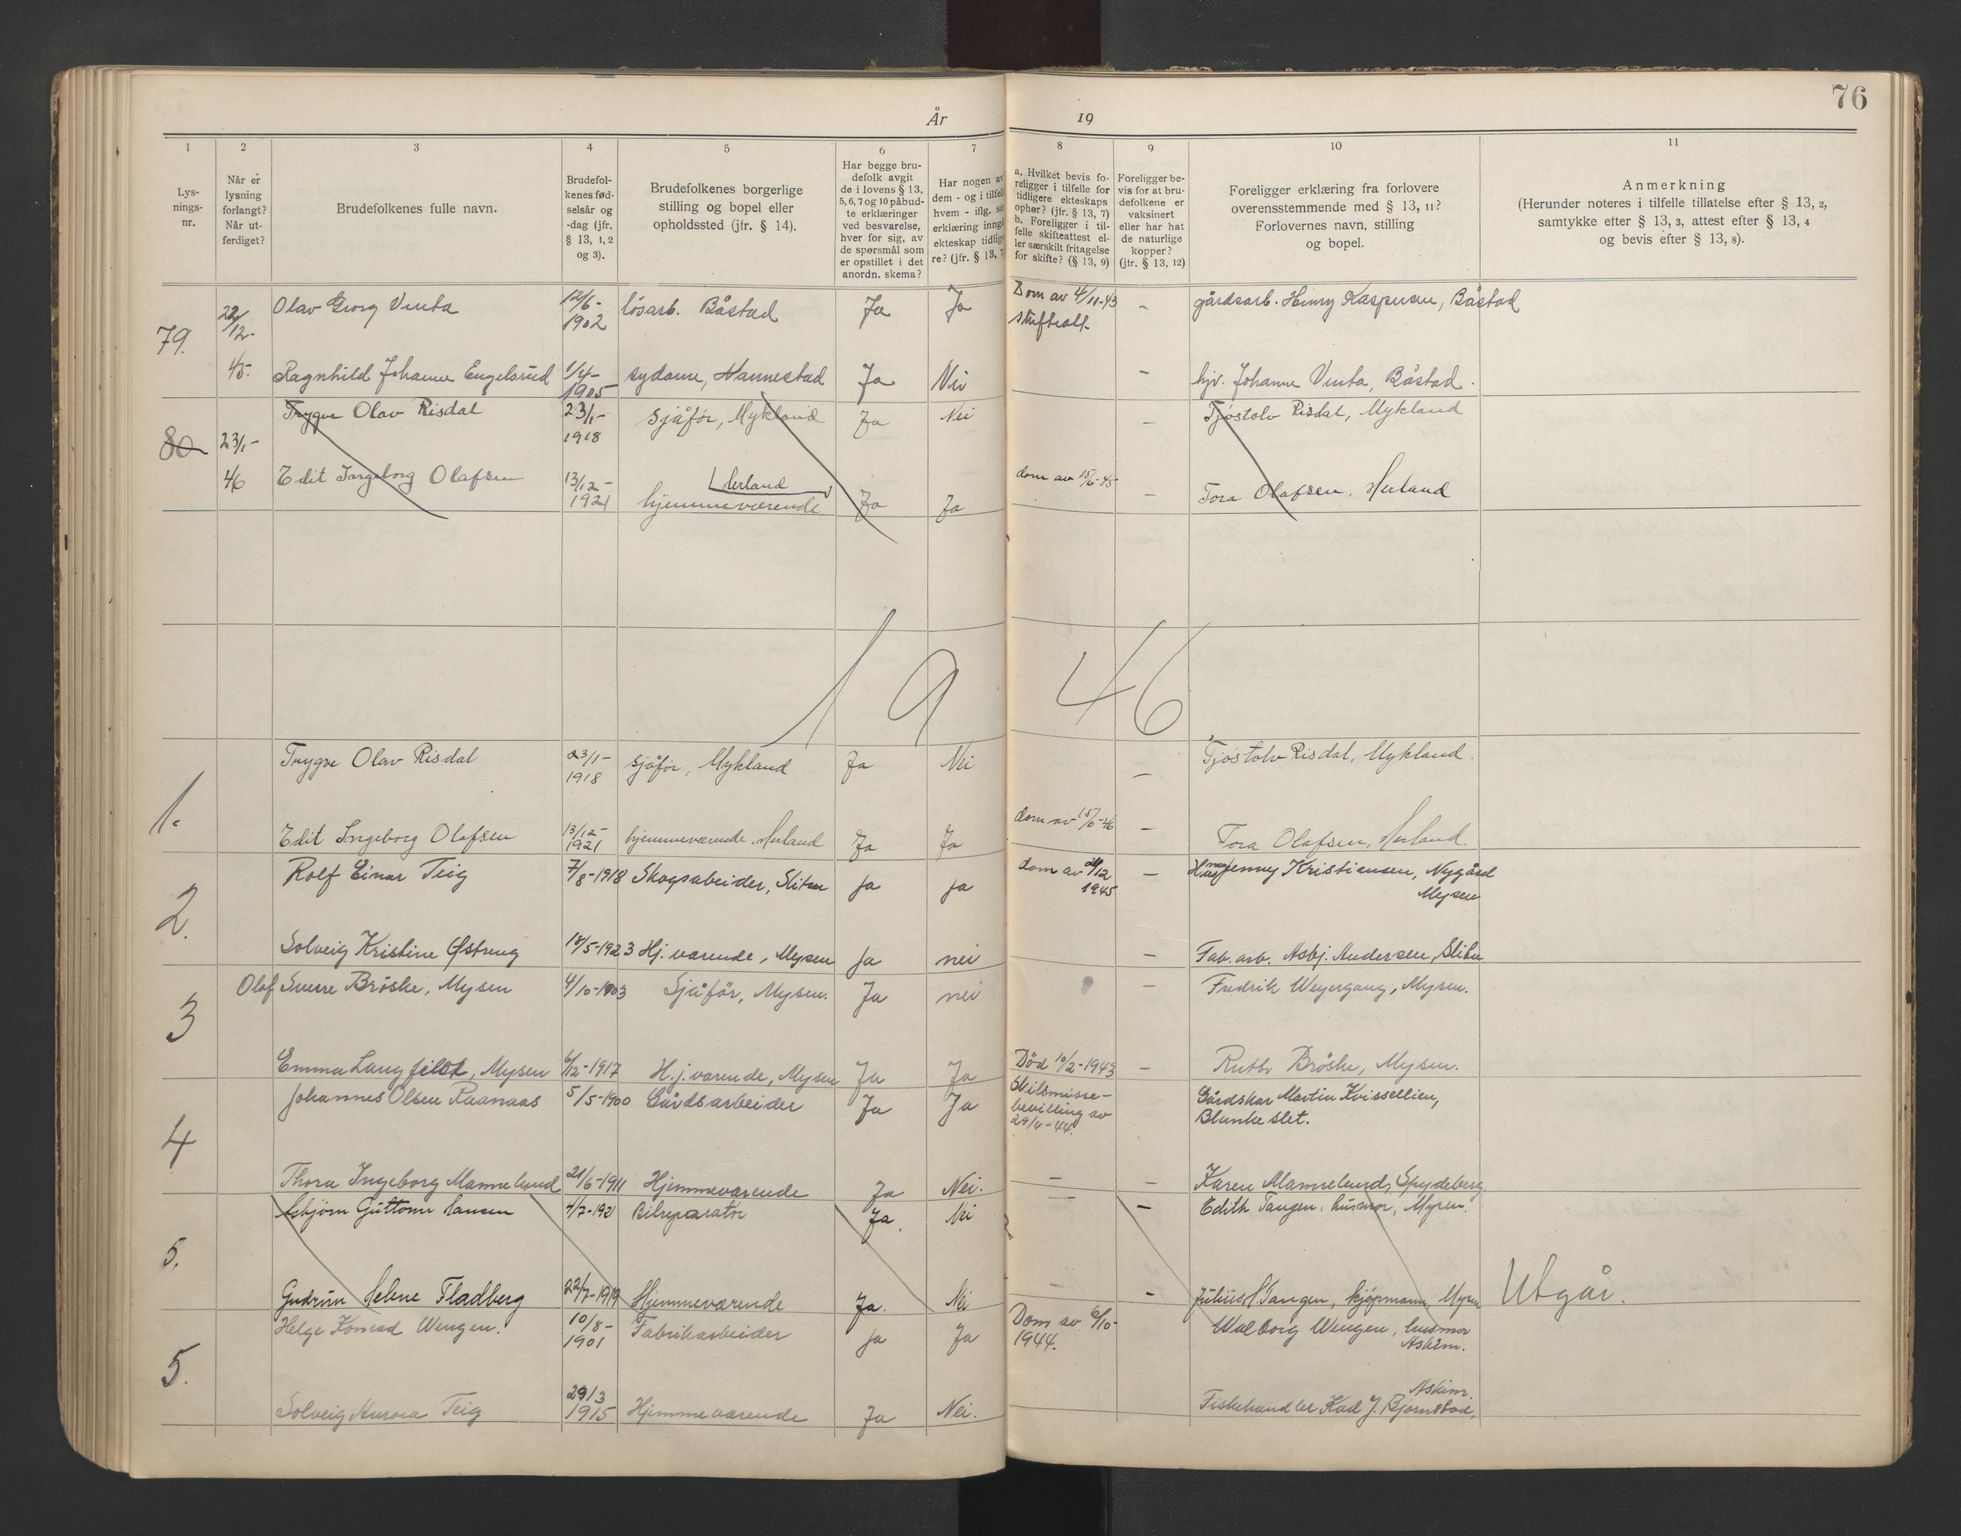 76
År 19
1 2 3 4 5 6 7 8 9 10 11
Lys-
nings-
nr.
Når er
lysning
forlangt?
Når ut-
ferdiget?
Brudefolkenes fulle navn.
Brudefol-
kenes fød-
selsår og
-dag (jfr.
§ 13, 1, 2
og 3).
Brudefolkenes borgerlige
stilling og bopel eller
opholdssted (jfr. § 14).
Har begge bru-
defolk avgit
de i lovens § 13,
5, 6, 7 og 10 påbud-
te erklæringer
ved besvarelse,
hver for sig, av
de spørsmål som
er opstillet i det
anordn. skema?
Har nogen av
dem - og i tilfelle
hvem - iflg. sin
erklæring inngå
ekteskap tidlige
re? (jfr. § 13, 7
a. Hvilket bevis fo-
religger i tilfelle for
tidligere ekteskaps
ophør? (jfr. § 13, 7)
b. Foreligger i til-
felle skifteattest el-
ler særskilt fritagelse
for skifte? (§ 13, 9)
Foreligger be-
vis for at bru-
defolkene er
vaksinert
eller har hat
de naturlige
kopper?
(jfr. § 13, 12)
Foreligger erklæring fra forlovere
overensstemmende med § 13, 11?
Forlovernes navn, stilling
og bopel.
Anmerkning
(Herunder noteres i tilfelle tillatelse efter § 13, 2,
samtykke efter § 13, 3, attest efter § 13, 4
og bevis efter § 13, 8).
79. 22/12- Olav Georg Vinta 12/6-1902 løsarb. Båstad Ja Ja Dom av 4/11-43 skifteatt. - gårdsarb. Henry Kaspersen, Båstad
45. Ragnhild Johanne Engelsrud 1/4-1905 sydame, Hannestad Ja Nei - hjv. Johanne Vinta, Båstad.
80 23/1- Trygve Olav Risdal 23/1-1918 sjåfør, Mykland Ja Nei - Tjøstolv Risdal, Mykland
46 Edit Ingeborg Olafsen 13/12-1921 hjemmeværende Herland Ja Ja dom av 15/6-45 - Tora Olafsen, Herland
1946
1. Trygve Olav Risdal 23/1-1918 sjåfør, Mykland Ja Nei - Tjøstolv Risdal, Mykland.
Edit Ingeborg Olafsen 13/12-1921 hjemmeværende, Herland Ja Ja dom av 15/6-46 - Tora Olafsen, Herland.
2. Rolf Einar Teig 7/8-1918 Skogsabeider, Slitu Ja Ja dom av 21/12 1945 - Jenny Kristiensen, Nygård Mysen
Solveig Kristine Østreng 18/5-1923 Hj. værende, Mysen Ja nei - Fab. arb. Asbj. Andersen, Slitu
3 Olaf Sverre Brøske, Mysen 4/10-1903 Sjåfør, Mysen. Ja nei - Fredrik Weyergang, Mysen.
Emma Langfildt, Mysen 6/12-1917 H.j.værende, Mysen Ja Ja Død 10/2-1943 - Ruth Brøske, Mysen.
4 Johannes Olsen Raanaas 5/5-1900 Gårdsarbeider Ja Ja Skilsmisse-
bevilling av
29/4-44. Gårdskar Martin Kvissellien,
Blunkeslet.
Thora Ingeborg Mannelund 21/6-1911 Hjemmeværende Ja Nei. - - Karen Mannelund, Spydeberg.
5. Asbjørn Guttorm Hansen 4/7-192 Bilreparatør Ja. Nei - - Edith Tangen, husmor, Mysen.
Gudrun Helene Fladberg 22/7-1919 Hjemmeværende Ja. Nei - - Julius H. Tangen, kjøpmann, Mysen Utgår.
5. Helge Konrad Wengen. 10/8-1901 Fabrikarbeider Ja Ja Dom av 6/10-1944. Walborg Wengen, husmor Askim.
Solveig Aurora Teig 29/3 1915 Hjemmeværende Ja Nei. Fiskehandler Karl J. Bjørnstad, Askim.